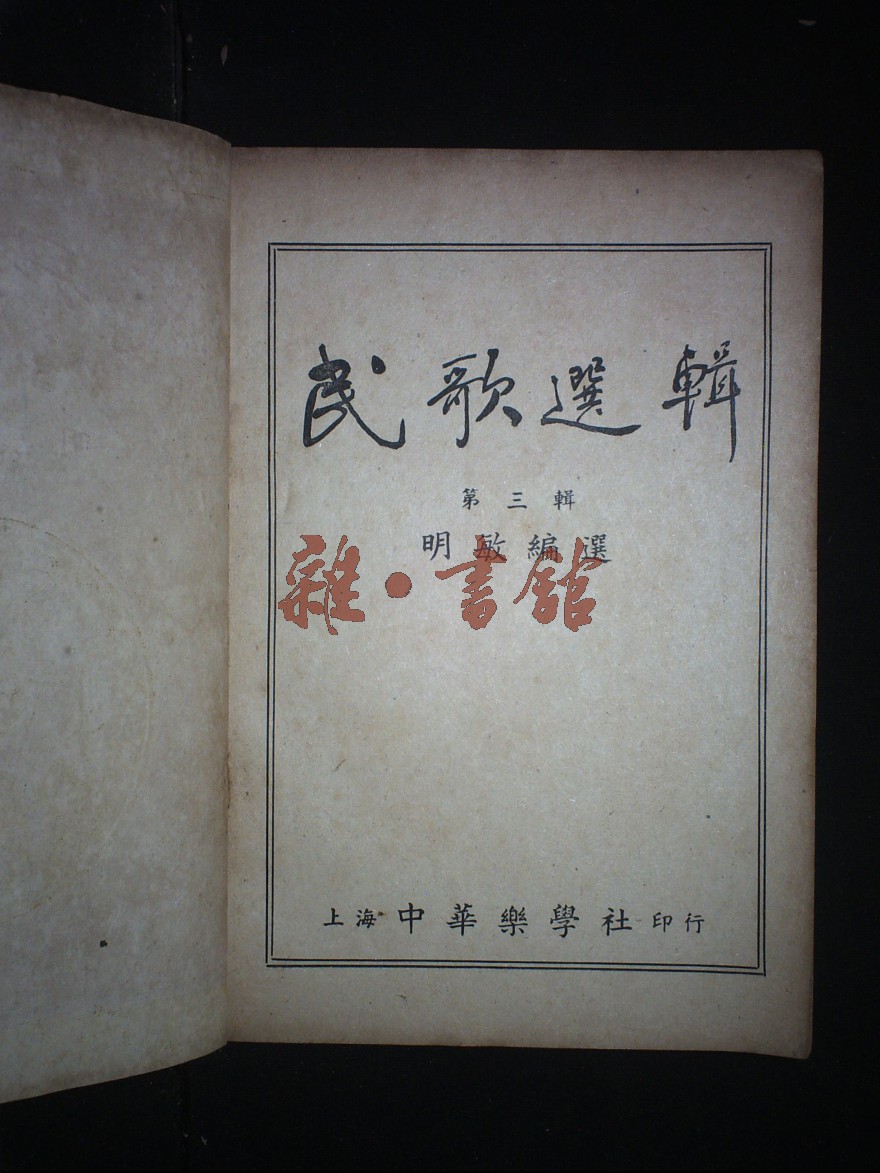 民歌選輯
第三輯
明敏編選
雜·書館
上海中華樂學社印行